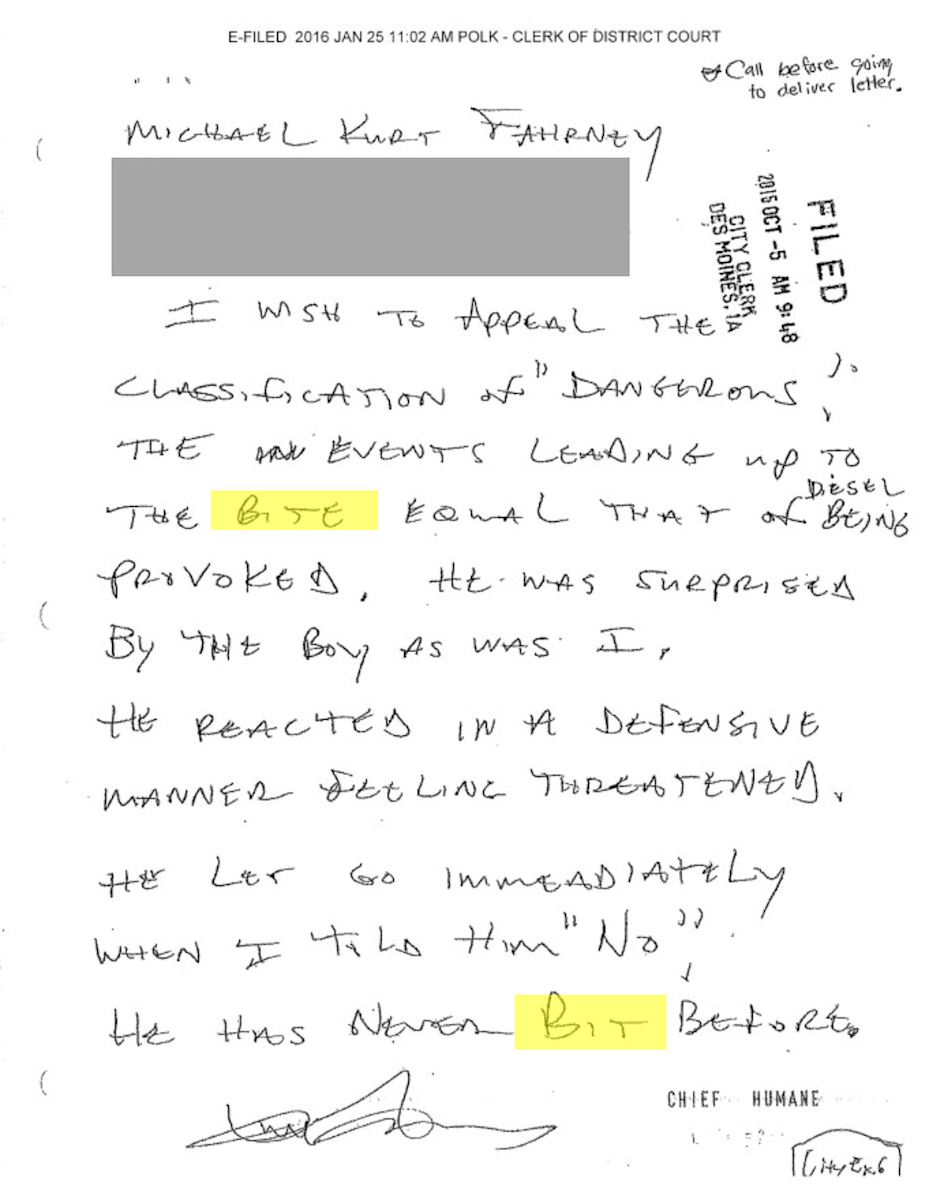 E-FILED 2016 JAN 25 11:02 AM POLK - CLERK OF DISTRICT COURT
Call before going
to deliver letter.
MICHAEL KURT FAHRNEY
FILED
2015 OCT -5 AM 9:48
CITY CLERK
DES MOINES, IA
I WISH TO APPEAL THE
CLASSIFICATION of "DANGEROUS".
THE EVENTS LEADING up TO
THE BITE EQUAL THAT of DIESEL BEING
PROVOKED. HE WAS SURPRISED
BY THE BOY AS WAS I.
HE REACTED IN A DEFENSIVE
MANNER FEELING THREATENED.
HE LET GO IMMEADIATELY
WHEN I TOLD HIM "NO".
HE HAS NEVER BIT BEFORE.
CHIEF HUMANE
City Ex. 6